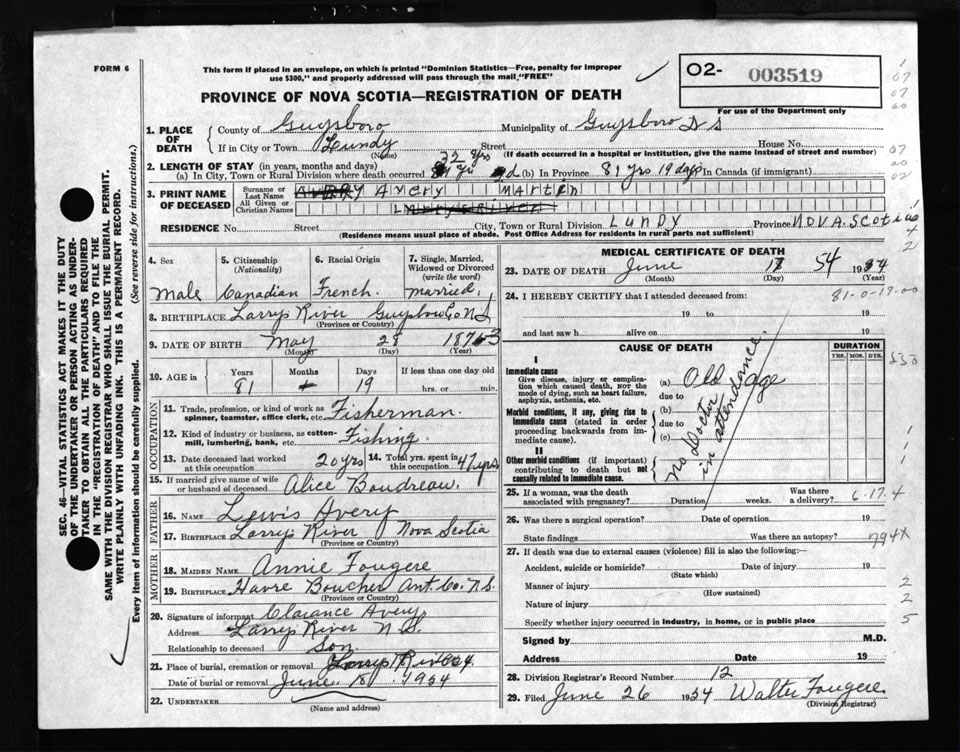 FORM 6
This form if placed in an envelope, on which is printed "Dominion Statistics—Free, penalty for improper
use $300," and properly addressed will pass through the mail "FREE"
02- 003519
For use of the Department only
PROVINCE OF NOVA SCOTIA—REGISTRATION OF DEATH
SEC. 46—VITAL STATISTICS ACT MAKES IT THE DUTY
OF THE UNDERTAKER OR PERSON ACTING AS UNDER-
TAKER TO OBTAIN ALL THE PARTICULARS REQUIRED
IN THE "REGISTRATION OF DEATH" AND TO FILE THE
SAME WITH THE DIVISION REGISTRAR WHO SHALL ISSUE THE BURIAL PERMIT.
WRITE PLAINLY WITH UNFADING INK. THIS IS A PERMANENT RECORD.
Every item of information should be carefully supplied. (See reverse side for instructions.)
1. PLACE OF DEATH
County of Guysboro Municipality of Guysboro D S
If in City or Town Lundy Street House No.
(Name) (If death occurred in a hospital or institution, give the name instead of street and number)
2. LENGTH OF STAY (in years, months and days) 32 yrs
(a) In City, Town or Rural Division where death occurred (b) In Province 81 yrs 19 days In Canada (if immigrant)
3. PRINT NAME OF DECEASED
Surname or Last Name Avery Martin
All Given or Christian Names
RESIDENCE No. Street City, Town or Rural Division Lundy Province Nova Scotia
(Residence means usual place of abode. Post Office Address for residents in rural parts not sufficient)
4. Sex Male
5. Citizenship (Nationality) Canadian
6. Racial Origin French
7. Single, Married, Widowed or Divorced (write the word) married
8. BIRTHPLACE Larrys River Guysboro Co N S
(Province or Country)
9. DATE OF BIRTH May 28 1873
(Month) (Day) (Year)
10. AGE in Years 81 Months Days 19 If less than one day old hrs. or min.
OCCUPATION
11. Trade, profession, or kind of work as spinner, teamster, office clerk, etc. Fisherman.
12. Kind of industry or business, as cotton-mill, lumbering, bank, etc. Fishing.
13. Date deceased last worked at this occupation 20 yrs 14. Total yrs. spent in this occupation 47 yrs
15. If married give name of wife or husband of deceased Alice Boudreau.
FATHER
16. NAME Lewis Avery
17. BIRTHPLACE Larrys River Nova Scotia
(Province or Country)
MOTHER
18. MAIDEN NAME Annie Fougere
19. BIRTHPLACE Havre Boucher Ant. Co. N.S.
(Province or Country)
20. Signature of informant Clarance Avery
Address Larrys River N S.
Relationship to deceased Son.
21. Place of burial, cremation or removal Larrys River
Date of burial or removal June 18, 1954
22. UNDERTAKER
(Name and address)
MEDICAL CERTIFICATE OF DEATH
23. DATE OF DEATH June 17 54 1954
(Month) (Day) (Year)
81-0-19-00
24. I HEREBY CERTIFY that I attended deceased from:
19 to 19
and last saw h alive on 19
CAUSE OF DEATH
DURATION
YRS. MOS. DYS.
I
Immediate cause
Give disease, injury or complication which caused death, NOT the mode of dying, such as heart failure, asphyxia, asthenia, etc.
(a) Old age
due to
Morbid conditions, if any, giving rise to immediate cause (stated in order proceeding backwards from immediate cause).
(b)
due to
(c)
II
Other morbid conditions (if important) contributing to death but not causally related to immediate cause.
no Doctor in attendance.
25. If a woman, was the death associated with pregnancy? Duration weeks. Was there a delivery?
6-17-4
26. Was there a surgical operation? Date of operation 19
State findings Was there an autopsy?
794X
27. If death was due to external causes (violence) fill in also the following:—
Accident, suicide or homicide? Date of injury 19
(State which)
Manner of injury
(How sustained)
Nature of injury
Specify whether injury occurred in industry, in home, or in public place
Signed by M.D.
Address Date 19
28. Division Registrar's Record Number 12
29. Filed June 26 1954 Walter Fougere
(Division Registrar)